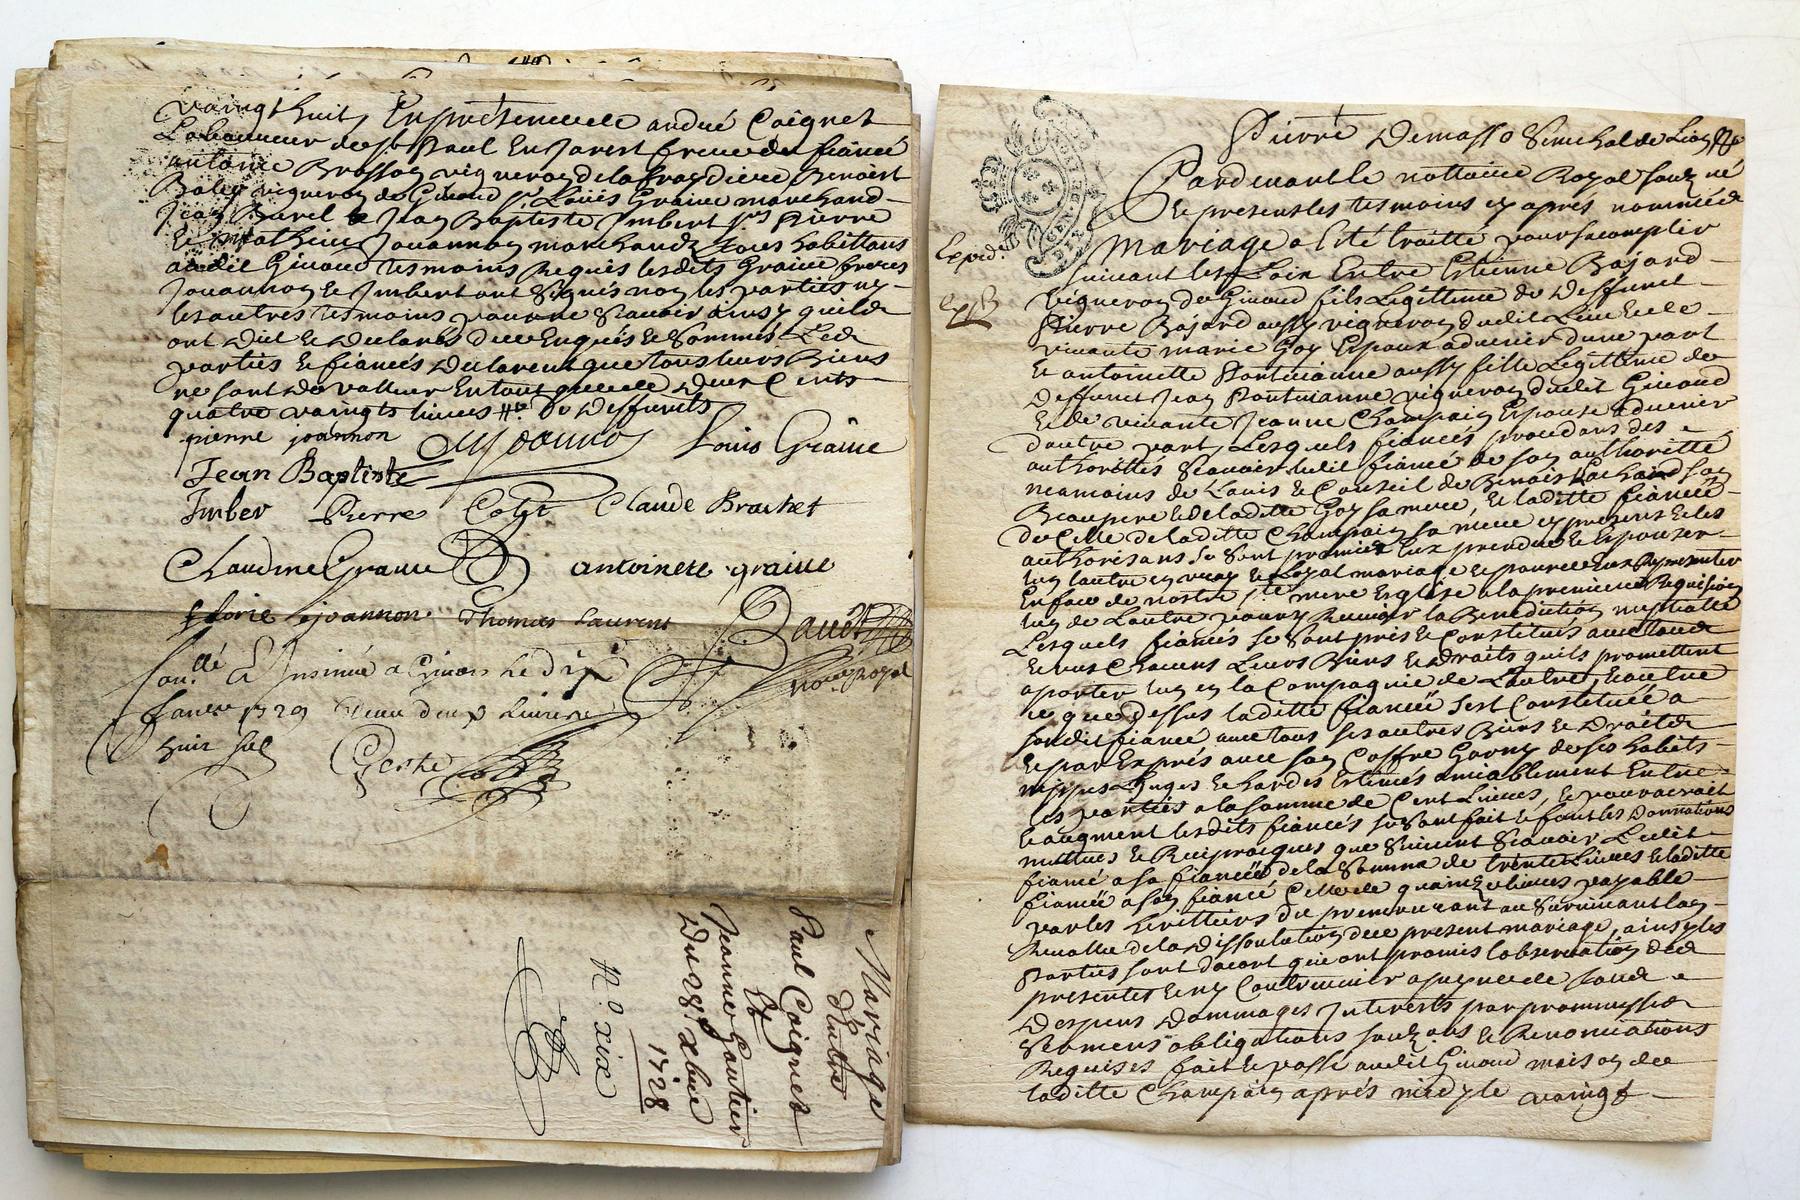 vaingt huit, En presence de andré Coignet
Laboureur de st Paul En Jarest frere du fiancé
antoine Brossy vigneron de la fraydiere Benoist
vigneron de Givord Sr Louis Graine marchand
Jean Burel & Jean Baptiste Imbert Srs Pierre
& Mathieu Jouannon marchandz tous habittans
audit Givord tesmoins Requis lesdits Graine freres
Jouannon & Imbert ont signés non les parties ny
les autres tesmoins pour ne scavoir ainsy quils
ont dit & declarés de ce Enquis & sommés Led
parties & fiancés declarent que tous leurs Biens
ne sont de valleur En tout que de deux Cents
quatre vaingts livres
pierre joannon Mjoannon Louis Graine
Jean Baptiste
Imber Pierre Claude Brachet
Claudine Graine antoinete graine
joannon Thomas Laurent
Con.llé & Insinué a Givors Le dix
Janvier 1729 Receu deux Livres
huit sols
no.re Royal
Mariage
d'Entre
Paul Coignet
Et
Jeanne Gautier
Du 28e xbre
1728
N.o xix
Pierre Demasso Senechal de Lion
GEN. DE LION
Pardevant le nottaire Royal souz né
& presents les tesmoins cy apres nommés
Exped.
Mariage a été traitté pour sacomplir
suivant les Loix Entre Etienne Bajard
vigneron de Givord fils Legittime de deffunct
Pierre Bajard aussy vigneron dudit Lieu & de
vivante marie Goy Espoux advenir dune part
& antoinette Fontvianne aussy fille Legittime de
deffunct Jean Fontvianne vigneron dudit Givord
& de vivante Jeanne Champain Espouse advenir
dautre part, Lesquels fiancés procedans des
authorittés scavoir ledit fiancé de son authoritté
neamoins de Lavis & Conseil de Benoist son
Beaupere & de ladite Goy sa mere, & laditte fiancéé
de Celle de laditte Champain sa mere cy presens & les
authorisans se sont promis Eux prendre & Espouser
lun lautre en vray & Loyal mariage & pour ce Eux Representer
En face de nostre ste mere Eglise a la premiere Requisition
lun de Lautre pour y Recevoir la Benediction nuptialle
Lesquels fiancés se sont pris & Constitués avec tous
& uns Chacuns Leurs Biens & droits quils promettent
aporter lun en la Compagnie de Lautre, & outre
ce que dessus laditte fiancéé sest Constituée a
sondit fiancé avec tous ses autres Biens & droits
& par Exprés avec son Coffre Garny de ses habits
nippes Linges & hardes Estimés amiablement Entre
les parties a la somme de Cent Livres, & pour accroit
& augment lesdits fiancés se sont fait & font les donnations
mutues & Reciproques que suivent scavoir Ledit
fiancé a sa fiancéé de la somme de trente Livres & laditte
fiancéé a son fiancé Celle de quainze livres payable
par les heritiers du premourant au survivant lors
de la dissolution du present mariage, ainsy les
Parties sont dacort qui ont promis lobservation des
presentes & ny Contrevenir a peyne de tous
despens dommages Interets par promesses
serments obligations souz ons & Renonciations
Requises fait & passé audit Givord maison de
laditte Champain aprés midy le vaingt